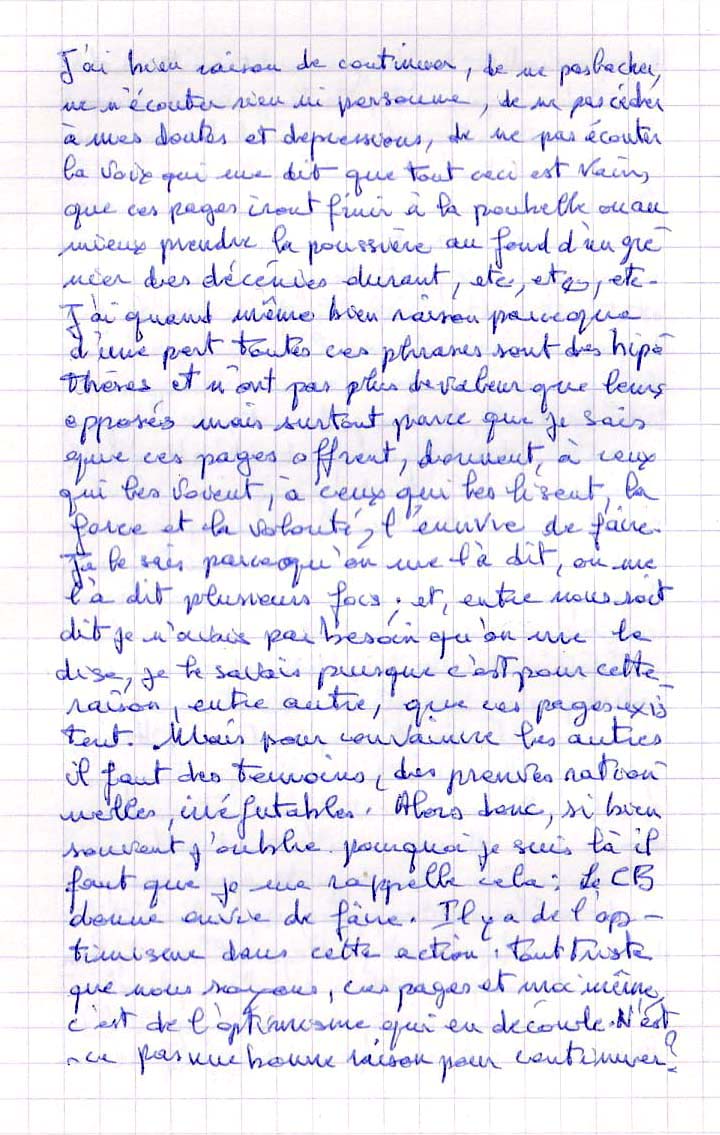 J'ai bien raison de continuer, de ne pas lacher,
ne n'écouter rien ni personne, de ne pas céder
à mes doutes et depressions, de ne pas écouter
la voix qui me dit que tout ceci est vain,
que ces pages iront finir à la poubelle ou au
mieux prendre la poussière au fond d'un gre
nier des décénies durant, etc, etc, etc.
J'ai quand même bien raison parceque
d'une part toutes ces phrases sont des hipo
thèses et n'ont pas plus de valeur que leurs
opposés mais surtout parce que je sais
que ces pages offrent, donnent, à ceux
qui les voient, à ceux qui les lisent, la
force et la volonté, l'envie de faire.
Je le sais parcequ'on me l'a dit, on me
l'a dit plusieurs fois; et, entre nous soit
dit je n'avais pas besoin qu'on me le
dise, je le savais puisque c'est pour cette
raison, entre autre, que ces pages exis
tent. Mais pour convaincre les autres
il faut des temoins, des preuves ration
nelles, iréfutables. Alors donc, si bien
souvent j'oublie pourquoi je suis là il
faut que je me rappelle cela: Le CB
donne envie de faire. Il y a de l'op-
timisme dans cette action. Tout triste
que nous soyons, ces pages et moi même,
c'est de l'optimisme qui en découle. N'est
-ce pas une bonne raison pour continuer?